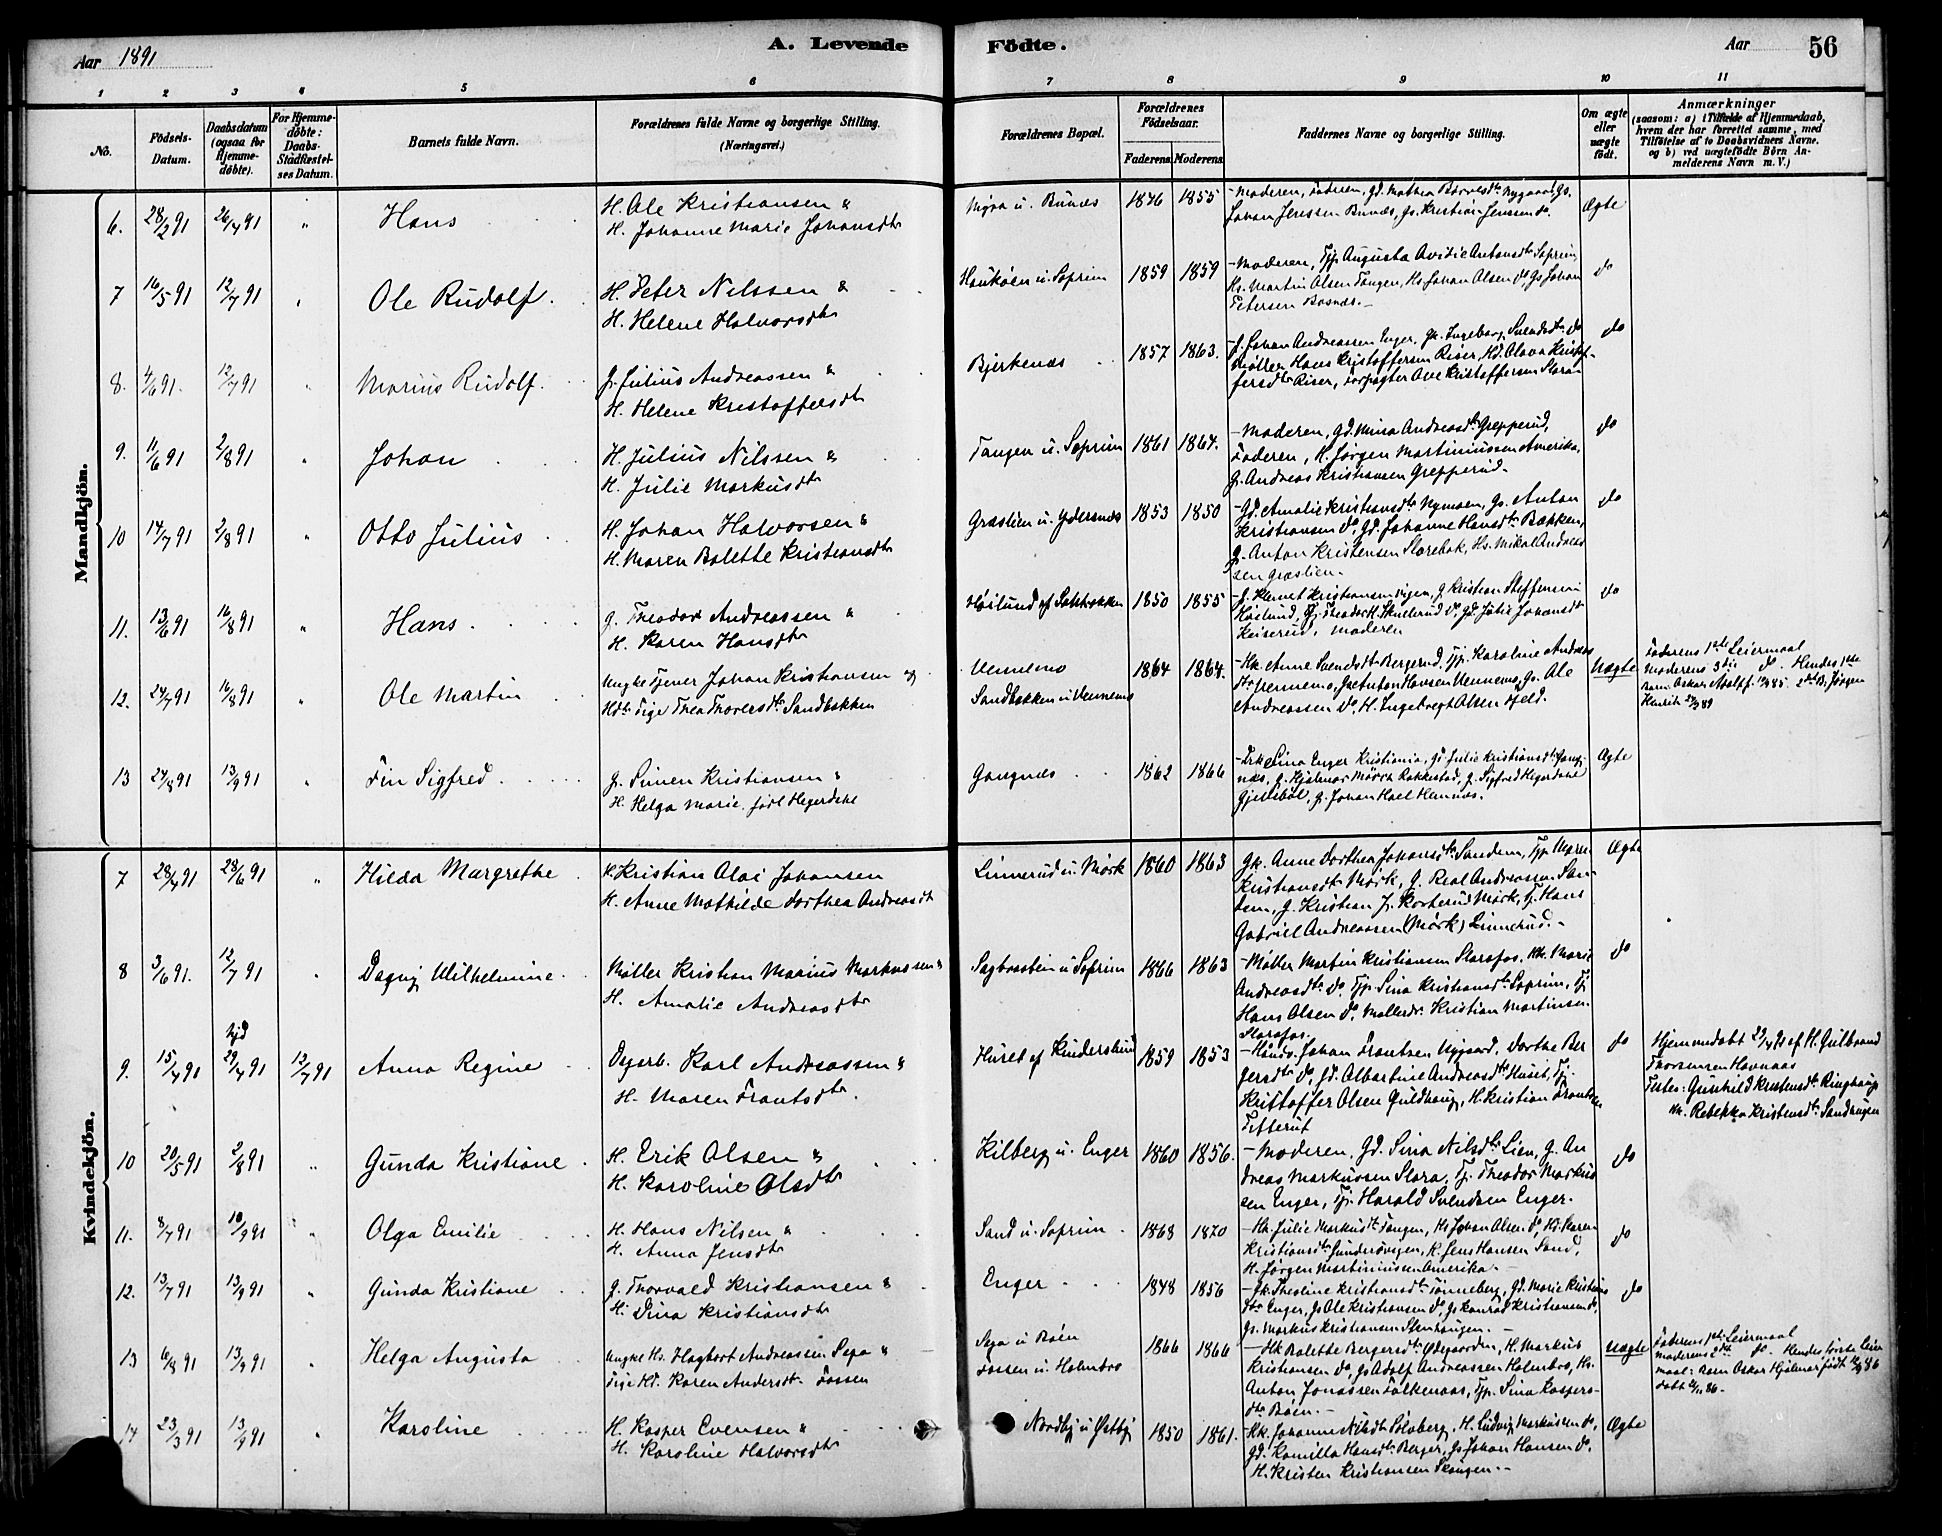 Aar 1891
A. Levende
Födte.
Aar
56
1 2 3 4 5 6 7 8 9 10 11
No.
Födsels-
Datum.
Daabsdatum
(ogsaa for
Hjemme-
døbte).
For Hjemme-
døbte:
Daabs-
Stadfæstel-
ses Datum.
Barnets fulde Navn.
Forældrenes fulde Navne og borgerlige Stilling.
(Næringsvei.)
Forældrenes Bopæl.
Forældrenes
Födselsaar.
Faderens Moderens
Faddernes Navne og borgerlige Stilling.
Om ægte
eller
uægte
födt.
Anmærkninger
(saasom: a) i Tilfælde af Hjemmedaab,
hvem der har forrettet samme, med
Tilföielse af to Daabsvidners Navne.
og b) ved uægtefödte Börn An-
melderens Navn m. V.)
Mandkjön.
6. 28/2 91 26/4 91 " Hans
H. Ole Kristiansen &
H. Johanne Marie Johansdtr
Myra u. Bunæs 1846 1855
- Moderen, Faderen, Gd. Mathea
Johan Jenssen Bunæs, Gs. Kristian Jenssen do.
Ægte
7 16/5 91 12/7 91 " Ole Rudolf
H. Peter Nilssen &
H. Helene Halvorsdtr
Haukøen u. Soprim 1859 1859
- Moderen, Tjp. Augusta Antonsdtr Soprim,
Hs. Martin Olsen Tangen, Hs. Johan Olsen do, Gs. Johan
Petersen Bosnæs. -
do
8. 4/6 91. 12/7 91 " Marius Rudolf
G. Julius Andreassen &
H. Helene Kristoffersdtr
Bjerkenæs 1857 1863.
G. Johan Andreassen Enger, Gk. Ingeborg Svendsdtr do
Møller Hans Kristoffersen Riser, Hd. Olava Kristof-
fersdtr Riser, Forpagter Ole Kristoffersen Slora -
do
9. 11/6 91 2/8 91 " Johan
H. Julius Nilssen &
H. Julie Markusdtr
Tangen u. Soprim 1861 1864.
- Moderen, Gd. Mina Andreasdtr Grepperud,
Faderen, H. Jørgen Martiniussen Amerika,
G. Andreas Kristiansen Grepperud.
do
10 14/7 91 2/8 91 " Otto Julius
H. Johan Halvorsen &
H. Maren Bolette Kristiansdtr
Græslien u. Ydersnæs 1853 1850
- Gd. Amalie Kristiansdtr Nymoen, Gs. Anton
Kristiansen do, Gd. Johanne Hansdtr Bakken,
G. Anton Kristensen Slorebak, Hs. Mikal Andreas
sen Græslien.
do
11. 13/6 91 16/8 91 " Hans
G. Theodor Andreassen &
H. Karen Hansdtr
Høilund af 1850 1855
G. Kristian Steffensen
Høilund, Tj. Theodor H. Skullerud do, Gd. Julie Johansdtr
Keiserud, Moderen
do
12. 24/7 91 16/8 91 " Ole Martin
Ungkr Tjener Johan Kristiansen og
Hdtr Pige Thea Thoversdtr Sandbakken
Vennemo
Sandbakken u. Vennemo
1864 1864.
- Hk. Anne Svendsdtr Bergerud, Tjp. Karoline Andreas
dtr Vennemo, Anton Hansen Vennemo, Gs. Ole
Andreassen do, H. Ingebregt Olsen Held.
Uægte
Faderens 1ste Leiermaal
Moderens 3die do. Hendes 1ste
Barn: Oskar Adolf f. 85. 2det B. Jørgen
Henrik 89
13 24/8 91 13/9 91 " Fin Sigfred
G. Simen Kristiansen &
H. Helga Marie, født Hegerdahl
Gangnæs 1862 1866
- Frk. Sina Enger Kristiania, Gd. Julie Kristiansdtr Gang-
næs, G. Hjalmar Mørra Rakkestad, G. Sigfred Hegerdahl
Gjellebøl, G. Johan Hael Hemnæs.
Ægte
Kvindekjön.
7 28/4 91 28/6 91 " Hilda Margrethe
H. Kristian Olai Johansen
H. Anne Mathilde Dorthea Andreasdt
Linnerud u. Mørk 1860 1863
Gk. Anne Dorthea Johansdtr Sandem, Tjp. Maren
Kristiansdtr Mørk, G. Andreassen San-
dem, G. Kristian J. Korterud Mørk, Tj. Hans
Gabriel Andreassen (Mørk) Linnerud. -
Ægte
8 3/6 91. 12/7 91 " Dagny Wilhelmine
Møller Kristian Marius Markussen &
H. Amalie Andreasdtr
Sagbraatein u. Soprim 1866 1863
- Møller Martin Kristiansen Slorafos, Hk. Marie
Andreasdtr do, Tjp. Sina Kristiansdtr Soprim, Tj.
Hans Olsen do, Møllerdr. Kristian Martinsen
Slorafos.
do
9. 15/4 91 hjd 29/4 91 12/7 91 Anna Regine
Dagarb. Karl Andreassen &
H. Maren Frantsdtr.
Huset af Kinderslund 1859 1853
- Johan Frantsen Nygaard, Dorthe Ber
gersdtr do, Gd. Albertine Andreasdtr Huset, Tj.
Kristoffer Olsen Guldhaug, H. Kristian Frantsen
Fetterut
do
Hjemmedøbt 29/4 91 af H. Gulbrand
Thoresen Havnaas
Testes: Gunhild Kristensdtr Ringhaug
Hk. Rebekka Kristensdtr Sandhugen
10 20/5 91 2/8 91 " Gunda Kristiane
H. Erik Olsen &
H. Karoline Olsdtr
Kilberg u. Enger 1860 1856.
- Moderen, Gd. Sina Nilsdtr Lien, G. An
dreas Markussen Slora, Tj. Theodor Markus
sen Enger, Tj. Harald Svendsen Enger.
do
11. 8/7 91 91 " Olga Emilie
H. Hans Nilsen &
H. Anna Jensdtr
Sand u. Soprim 1868 1870
- Hk. Julie Markusdtr Tangen, Hs Johan Olsen do, Hd. Karen
Kristiansdtr , K. Jens Hansen Sand,
H. Jørgen Martiniussen Amerika. -
do
12. 13/7 91 13/9 91 " Gunda Kristiane
G. Thorvald Kristiansen &
H. Dina Kristiansdtr
Enger 1848 1856
- Gk. Theoline Kristiansdtr Tønneberg, Gd. Marie Kristians
dtr Enger, Gs Ole Kristiansen do, Gs Konrad Kristiansen do,
Gs. Markus Kristiansen Stenhaugen. -
do
13 6/8 91 13/9 91 " Helga Augusta
Ungkr Hs. Hagbart Andreassen Sepa &
Pige Hd. Karen Andersdtr Fossen
Sepa u Bøen
Fossen u. Holmbro
1866 1866
- Hk Bolette Bergersdtr Ødegaarden, H. Markus
Kristiansen do, Gs Adolf Andreassen Holmbro, Hs.
Anton Jonassen Falkenaas, Tjp. Sina Kaspers-
dtr Bøen. -
Uægte
Faderens 1ste Leiermaal
Moderens 2det do. Hendes første Leier
maal: Barn Oskar Hjalmar født 86
døbt 86. -
14 23/3 91 13/9 91 " Karoline
H. Kasper Evensen &
H. Karoline Halvorsdtr
Nordby u Østby 1850 1861.
- Hk. Johanne Nilsdtr Solberg, H. Ludvig Markussen do,
Gd. Kamilla Hansdtr Berger, Gs Johan Hansen do,
H. Kristen Kristiansen Skaugen. -
Ægte